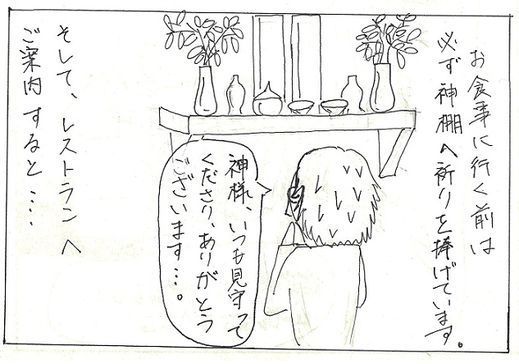 お食事に行く前は
必ず神棚へ祈りを捧げています。
神様、いつも見守って
くださり、ありがとう
ございます…。
そして、レストランへ
ご案内すると….